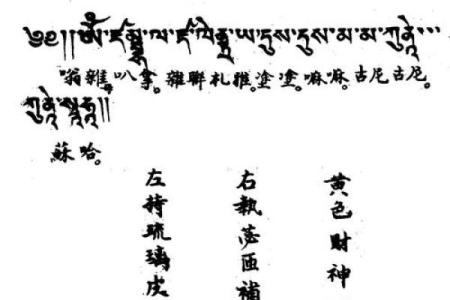 ༄༅།།ཨོཾ་ཛམྦྷ་ལ་ཛ་ལེནྡྲ་ཡ་དུས་དུས་མ་མ་ཀུཎྜེ་
嗡雜叭拿。雜聯札雅。塗塗。嘛嘛。古尼古尼。
ཀུཎྜེ་སྭཧཱ།།
蘇哈。
黄色財神
右執苾匝補
左持琉璃皮